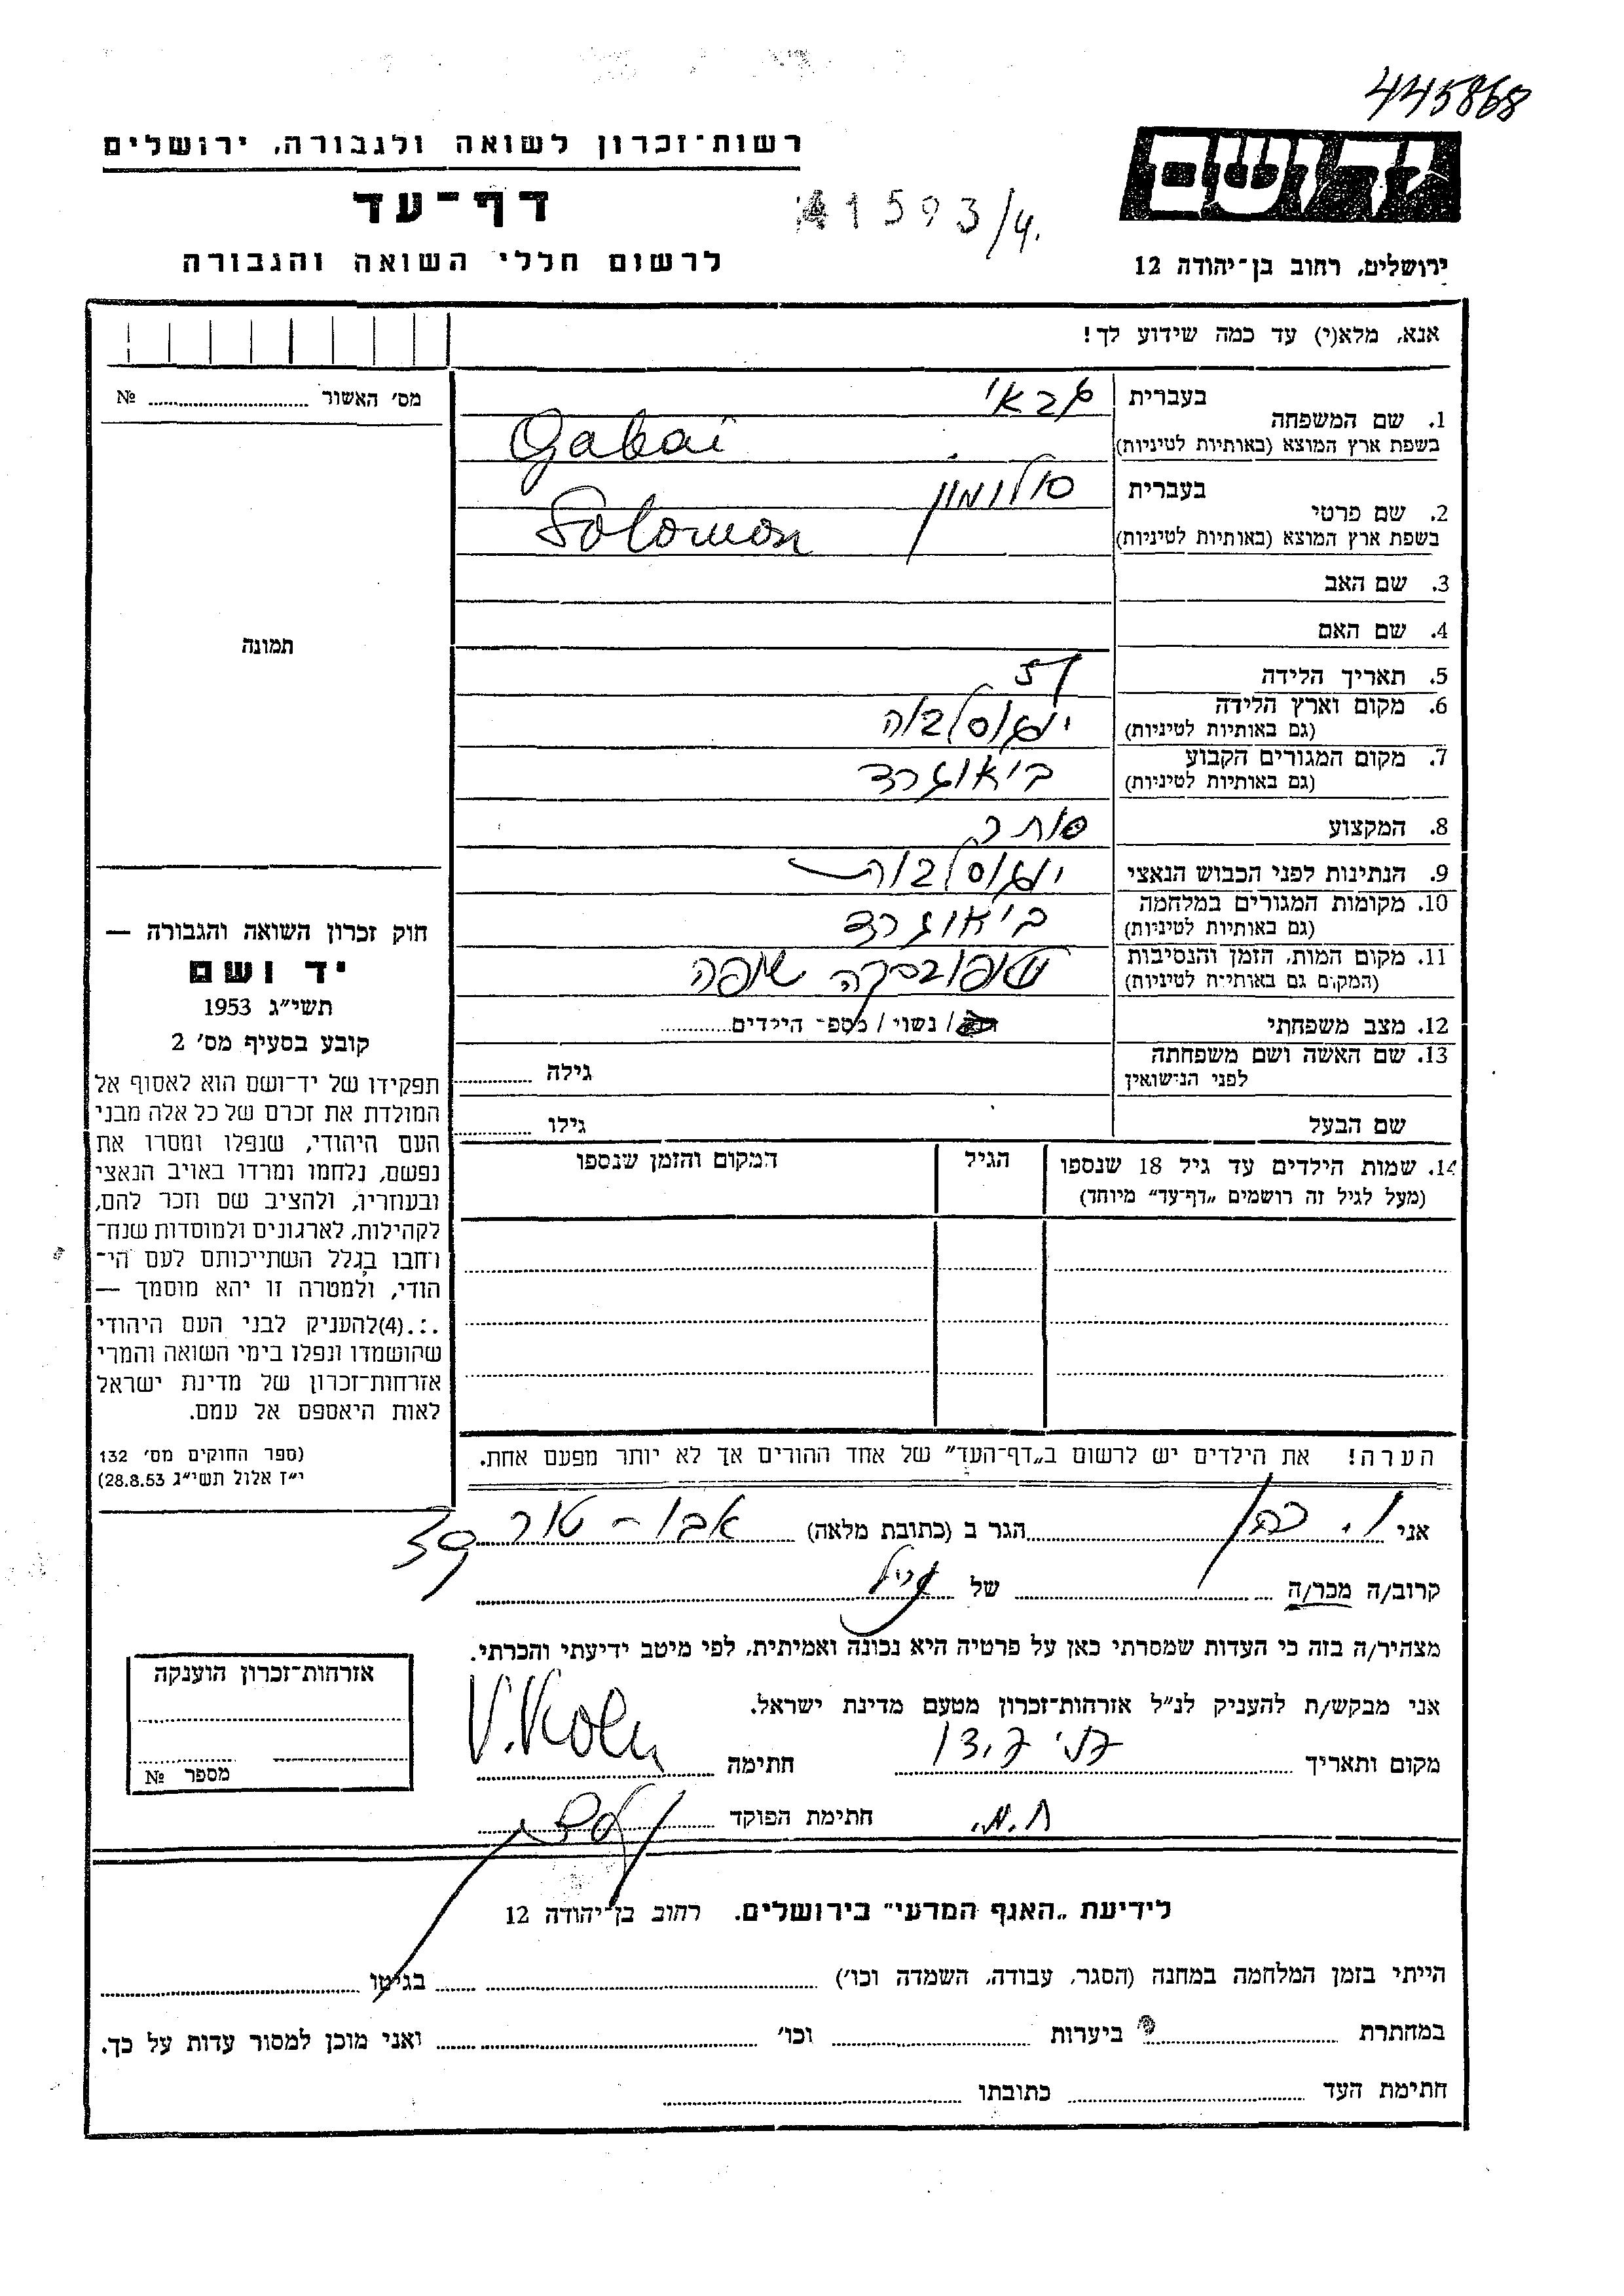 445868
רשות־זכרון לשואה ולגבורה, ירושלים
ידושם
דף־עד
41593/4.
לרשום חללי השואה והגבורה
ירושלים, רחוב בן־יהודה 12
אנא, מלא(י) עד כמה שידוע לך!
מס׳ האשור № 
תמונה
1. שם המשפחה
בעברית גבאי
בשפת ארץ המוצא (באותיות לטיניות) Gabai
2. שם פרטי
בעברית סולומון
בשפת ארץ המוצא (באותיות לטיניות) Solomon
3. שם האב
4. שם האם
5. תאריך הלידה 57
6. מקום וארץ הלידה
(גם באותיות לטיניות) יוגוסלביה
7. מקום המגורים הקבוע
(גם באותיות לטיניות) ביאוגרד
8. המקצוע סוחר
9. הנתינות לפני הכבוש הנאצי יוגוסלביה
10. מקומות המגורים במלחמה
(גם באותיות לטיניות) ביאוגרד
11. מקום המות, הזמן והנסיבות
(המקום גם באותיות לטיניות) שופה
12. מצב משפחתי / נשוי / מספר הילדים
13. שם האשה ושם משפחתה
לפני הנישואין
גילה
שם הבעל
גילו
14. שמות הילדים עד גיל 18 שנספו
(מעל לגיל זה רושמים „דף־עד״ מיוחד)
הגיל
המקום והזמן שנספו
חוק זכרון השואה והגבורה —
יד ושם
תשי״ג 1953
קובע בסעיף מס׳ 2
תפקידו של יד־ושם הוא לאסוף אל
המולדת את זכרם של כל אלה מבני
העם היהודי, שנפלו ומסרו את
נפשם, נלחמו ומרדו באויב הנאצי
ובעוזריו, ולהציב שם וזכר להם,
לקהילות, לארגונים ולמוסדות שנח־
רחבו בגלל השתייכותם לעם הי־
הודי, ולמטרה זו יהא מוסמך —
.:.(4)להעניק לבני העם היהודי
שהושמדו ונפלו בימי השואה והמרי
אזרחות־זכרון של מדינת ישראל
לאות היאספם אל עמם.
(ספר החוקים מס׳ 132
י״ז אלול תשי״ג 28.8.53)
הערה! את הילדים יש לרשום ב„דף־העד״ של אחד ההורים אך לא יותר מפעם אחת.
אני ו. כהן הגר ב (כתובת מלאה) אבו - טור 39
קרוב/ה מכר/ה של
מצהיר/ה בזה כי העדות שמסרתי כאן על פרטיה היא נכונה ואמיתית, לפי מיטב ידיעתי והכרתי.
אני מבקש/ת להעניק לנ״ל אזרחות־זכרון מטעם מדינת ישראל.
מקום ותאריך חתימה
חתימת הפוקד
אזרחות־זכרון הוענקה
מספר №
לידיעת „האגף המדעי״ בירושלים. רחוב בן־יהודה 12
הייתי בזמן המלחמה במחנה (הסגר, עבודה, השמדה וכו׳) בגיטו
במחתרת ביערות וכו׳ ואני מוכן למסור עדות על כך.
חתימת העד כתובתו